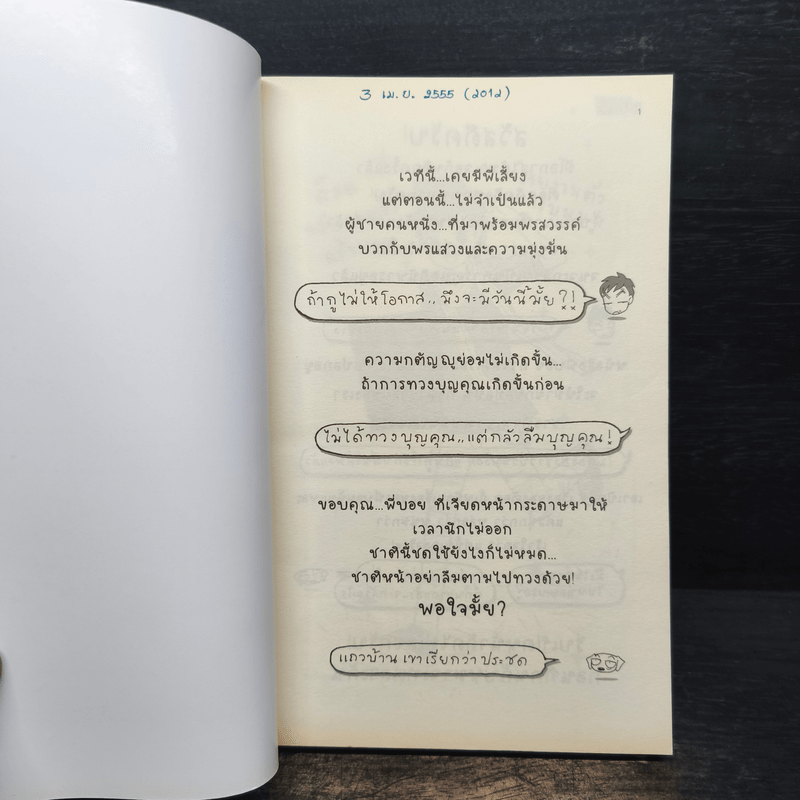 3 เม.ย. 2555 (2012)
1
เวทีนี้...เคยมีพี่เลี้ยง
แต่ตอนนี้...ไม่จำเป็นแล้ว
ผู้ชายคนหนึ่ง...ที่มาพร้อมพรสวรรค์
บวกกับพรแสวงและความมุ่งมั่น
ถ้ากูไม่ให้โอกาส,, มึงจะมีวันนี้มั้ย?!
ความกตัญญูย่อมไม่เกิดขึ้น...
ถ้าการทวงบุญคุณเกิดขึ้นก่อน
ไม่ได้ทวงบุญคุณ,,แต่กลัวลืมบุญคุณ!
ขอบคุณ...พี่บอย ที่เจียดหน้ากระดาษมาให้
เวลานึกไม่ออก
ชาตินี้ชดใช้ยังไงก็ไม่หมด...
ชาติหน้าอย่าลืมตามไปทวงด้วย!
พอใจมั้ย?
แถวบ้าน เขาเรียกว่า ประชด